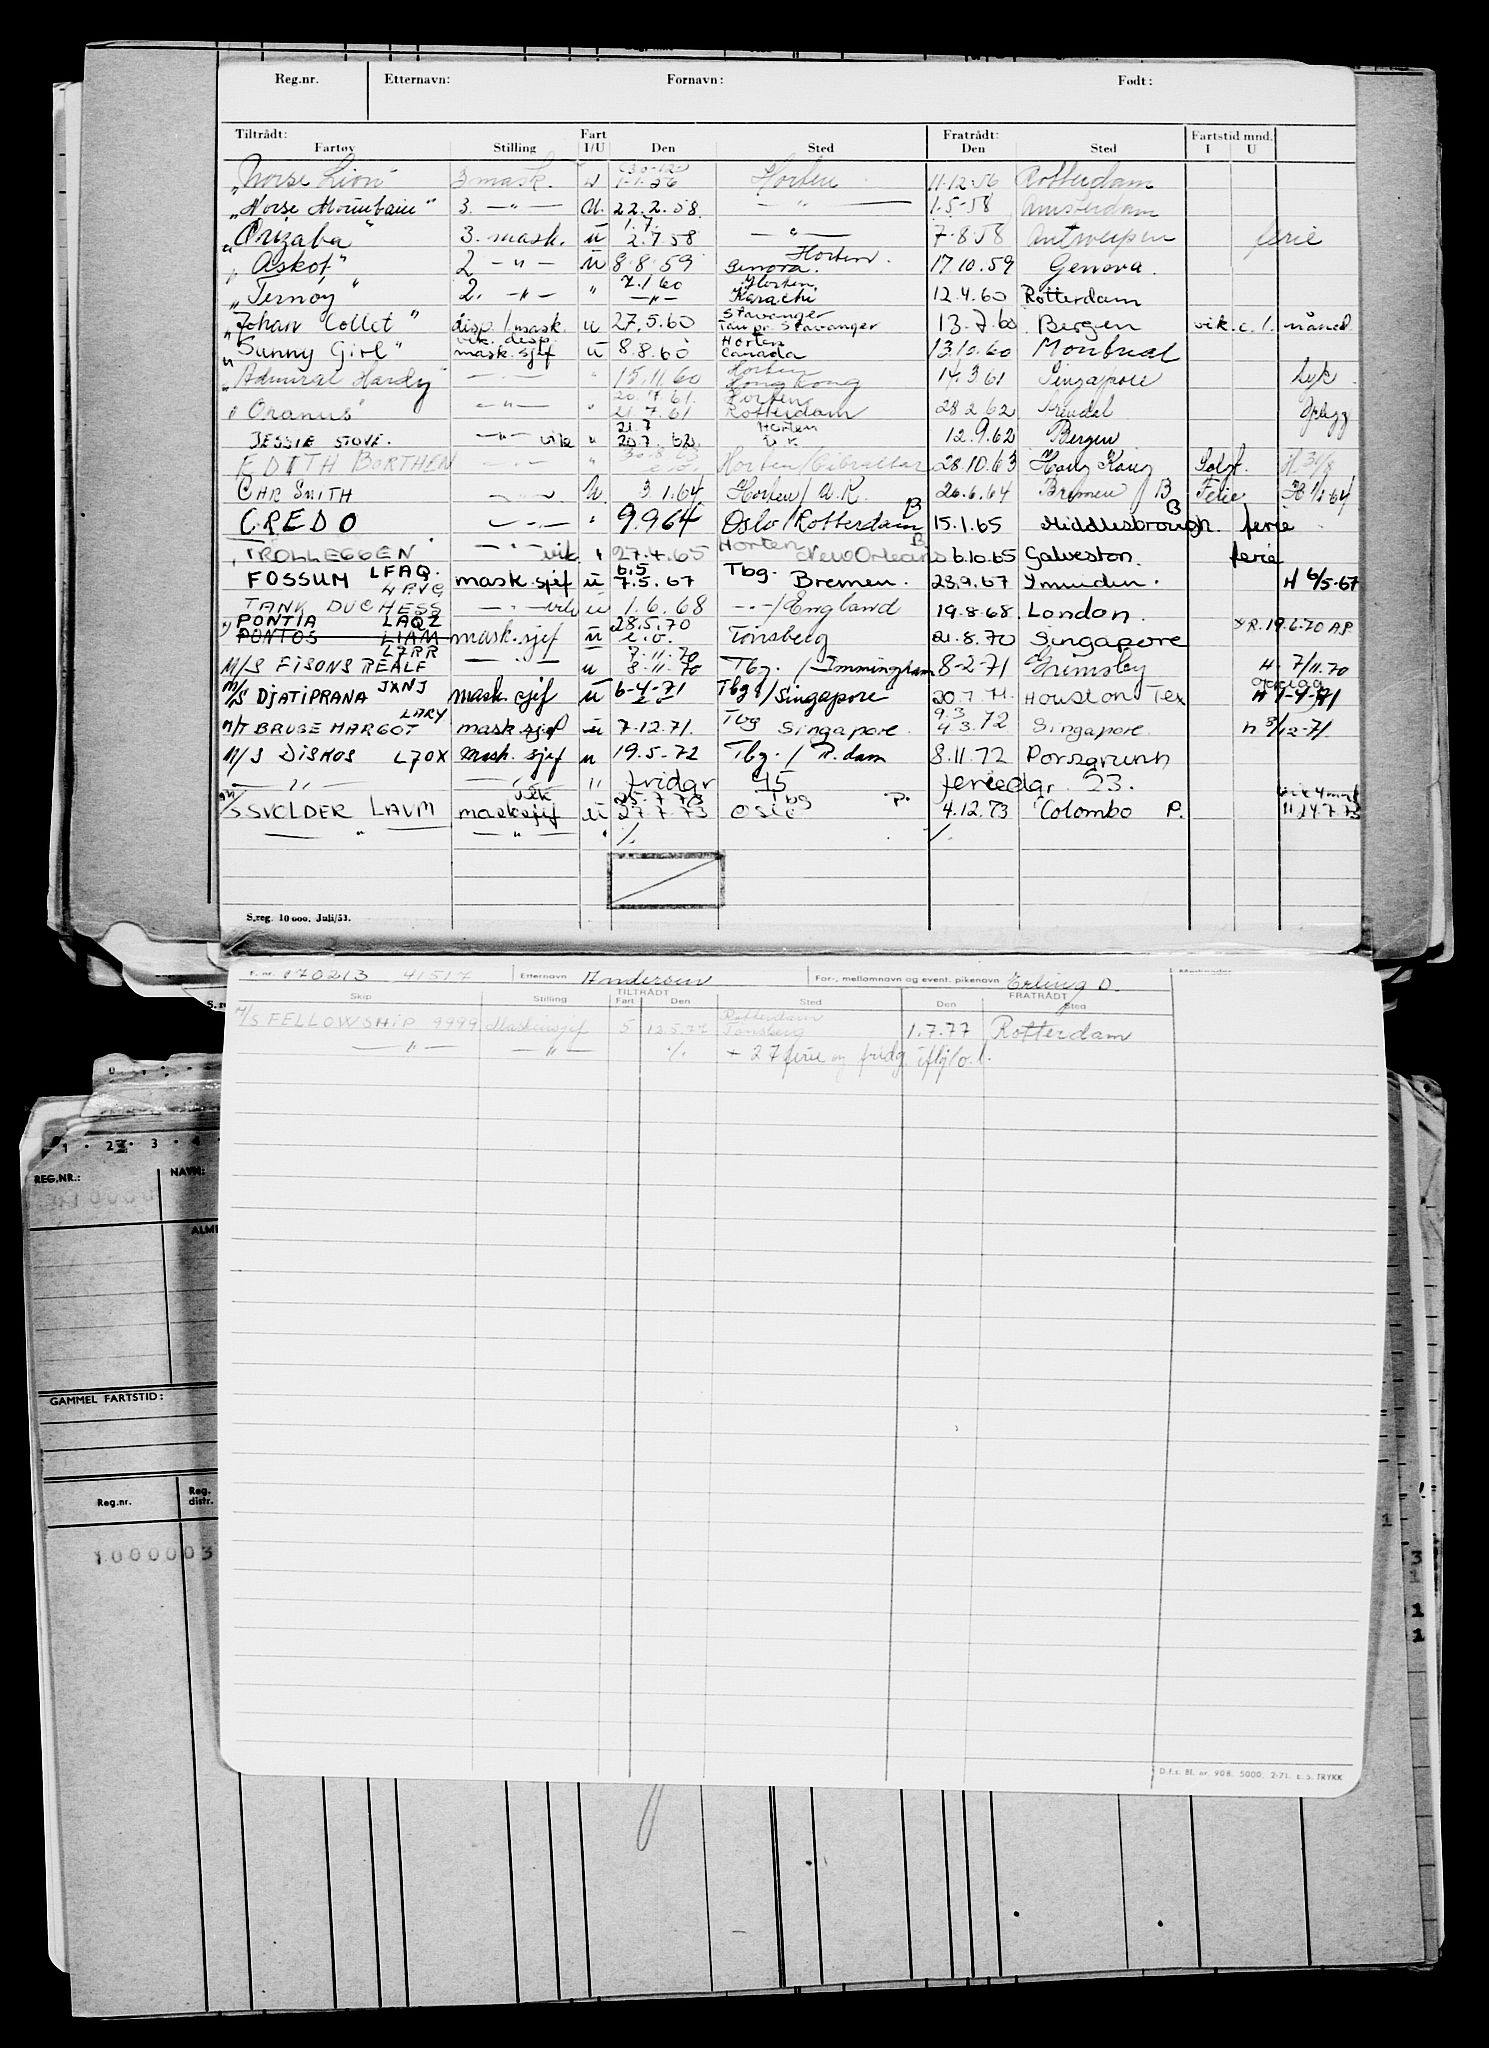 Reg.nr. Etternavn: Fornavn: Født:
Tiltrådt: Fart Fratrådt: Fartstid mnd.
Fartøy Stilling I/U Den Sted Den Sted I U
„Norse Lion" 3 mask. u 1.1.56 Horten 11.12.56 Rotterdam
„Norse Mountain" 3. —"— U. 22.2.58. —"— 1.5-58 Amsterdam
1.7.
„Orizaba" 3. mask. u 2.7.58 —"— 7.8.58 Antwerpen ferie
Horten.
„Askot" 2 —"— u 8.8.59 Genova. 17.10.59 Genova.
7.1.60 Horten,
„Ternøy" 2. —"— " —"— Karachi 12.4.60 Rotterdam
Stavanger
„Johan Collet" disp. 1 mask. u 27.5.60 Tau pr. Stavanger 13.7.60 Bergen vik. c. 1. måned.
vik. desp. Horten
„Sunny Girl" mask. sjef u 8.8.60 Canada 13.10.60 Montreal
Horten
„Admiral Hardy" —"— " 15.11.60 Hong Kong 14.3.61 Singapore Syk.
20.7.61. Horten
„Oranus" —"— " 21.7.61 Rotterdam 28.2.62 Arendal Opplegg
21.7 Horten
JESSIE STOVE. —"— vik " 20.7.62. U.K 12.9.62 Bergen
30.8.63
EDITH BORTHEN —"— " e.o. Horten/Gibraltar 28.10.63 Hong Kong Solgt. H. 30/8
CHR SMITH —"— U. 3.1.64 Horten/U.K. 26.6.64 Bremen B Ferie H 1/1 64
CREDO —"— " 9.9.64 Oslo/Rotterdam B 15.1.65 Middlesbrough. B ferie
TROLLEGGEN —"— vik. " 27.4.65 Horten New Orleans B 6.10.65 Galveston. ferie
6.5
FOSSUM LFAQ. mask. sjef u 7.5.67 Tbg. Bremen. 23.9.67 Ymuiden. H 6/5-67
TANK DUCHESS —"— vik u 1.6.68 —"—/England 19.8.68 London.
PONTIA LAQZ 28.5.70
PONTOS LIAM mask. sjef u e.o. Tønsberg 21.8.70 Singapore R. 19.6.70 AP.
L7RR 7.11.70
M/S FISONS REALF —"— u 8.11.70 Tbg. /Immingham 8-2-71 Grimsby H. 7/11.70
M/S DJATIPRANA JXNJ mask. sjef u 6-4-71 Tbg./Singapore 20.7.71. Houston Tex H 1-4-71
LARY 9.3
M/T BRUSE MARGOT mask. sjef u 7.12.71. Tbg Singapore. 4.3.72 Singapore. H 3/12-71.
M/S DISKOS L7OX Mask. sjef u 19.5-72 Tbg. / R.dam 8.11.72 Porsgrunn
—"— —"— " fridgr 45 feriedgr. 23.
vik 25.7.73 Tbg vik 4 mnd
M/S SVOLDER LAVM masksjef u 27.7.73 Oslo P. 4.12.73 Colombo P. H 24.7.73
—"— —"— " %. %.
S,reg. 10 000. Juli/53.
F. nr. 170213 41517 Etternavn Andersen For-, mellomnavn og event. pikenavn Erling O. Merknader
TILTRÅDT FRATRÅDT
Skip Stilling Fart Den Sted Den Sted
Rotterdam
M/S FELLOWSHIP 9999 Maskinsjef 5 12.5.77 Tønsberg 1.7.77 Rotterdam
—"— —"— %. + 27 ferie og fridg. iflg/o.l.
D.f.s. Bl. nr. 908. 5000. 2-71. E.S. TRYKK
1 · 2 · 3 · 4
REG.NR.: NAVN:
GAMMEL FARTSTID:
Reg.nr. Reg. distr.
1000003
1
3
1
1
1